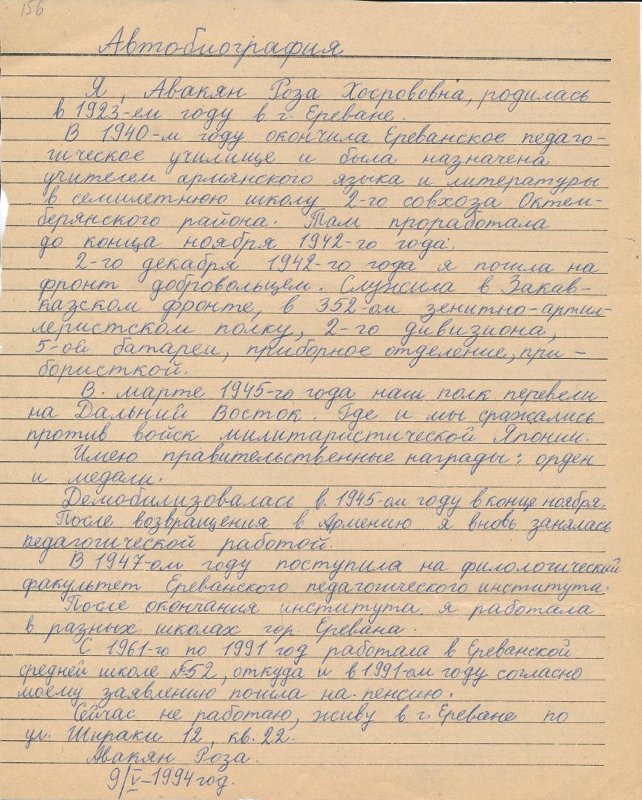 156
Автобиография
Я, Авакян Роза Хосрововна, родилась
в 1923-ем году в г. Ереване.
В 1940-м году окончила Ереванское педаго-
гическое училище и была назначена
учителем армянского языка и литературы
в семилетнюю школу 2-го совхоза Октем-
берянского района. Там проработала
до конца ноября 1942-го года.
2-го декабря 1942-го года я пошла на
фронт добровольцем. Служила в Закав-
казском фронте, в 352-ом зенитно-артил-
леристском полку, 2-го дивизиона,
5-ой батареи, приборное отделение, при-
бористкой.
В. марте 1945-го года наш полк перевели
на Дальний Восток. Где и мы сражались
против войск милитаристической Японии.
Имею правительственные награды: орден
и медали.
Демобилизовалась в 1945-ом году в конце ноября.
После возвращения в Армению я вновь занялась
педагогической работой.
В 1947-ом году поступила на филологический
факультет Ереванского педагогического института.
После окончания института я работала
в разных школах гор Еревана.
С 1961-го по 1991 год работала в Ереванской
средней школе №52, откуда и в 1991-ом году согласно
моему заявлению пошла на пенсию.
Сейчас не работаю, живу в г. Ереване по
ул. Шираки 12, кв. 22.
Авакян Роза.
9/V-1994 год.